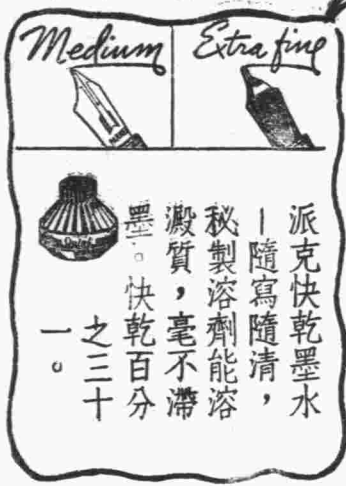 Medium
Extra fine
派克快乾墨水
—隨寫隨清，
秘製溶劑能溶
澱質，毫不滯
墨。快乾百分
之三十
一。
Quink